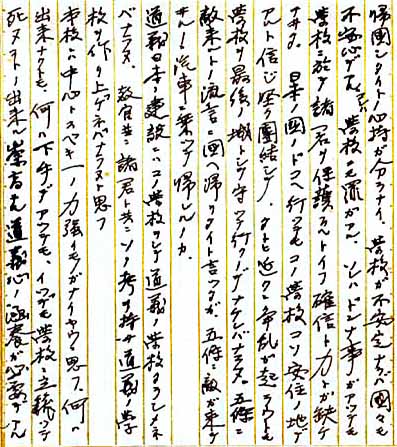 帰国シタクトノ心持ガ分ラナイ。学校ガ不安定ナラバ国モ
不安心デス。学校ニモ罪ガアル。ソレハドンナ事ガアツテモ
学校ニ於テ諸君ヲ保護スルトイフ確信ト力トガ缺
ナサヲ。日本ノ国ノドコヘ行ツテモコノ学校コソ安住ノ地デ
アルト信ジ堅ク團結シテ、タトヒ近クニ争乱ガ起ラウトモ
学校ヲ最後ノ城トシテ守ツテ行クノデナケレバナラヌ。五條ニ
敵来ルトノ流言ニ国ヘ帰リタイト言ツタガ五條ニ敵ガ来テ
ルノニ汽車ニ乗ツテ帰レルノカ。
道義日本ノ建設ニハコノ学校ヲシテ道義ノ学校タラシメネ
バナラヌ。教官モ諸君ト共ニソノ考ヲ持チ道義ノ学
校ヲ作リ上ゲネバナラヌト思フ
本校ニ中心トスベキ一ノ力強イモノガナイヤウニ思フ。何ガ
出来ナクトモ、何ガ下手デアツテモ、イツデモ学校ニ立籠ツテ
死ヌコトノ出来ル崇高ナ道義心ノ涵養ガ必要デアル